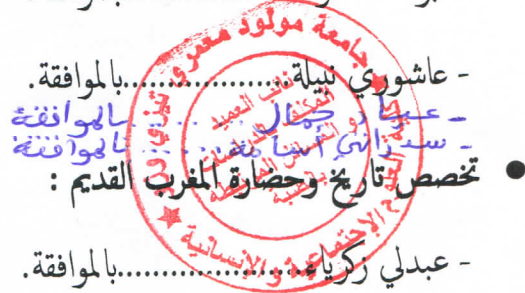 - عاشوري نبيلة..................بالموافقة.
- عمار كمال ........ بالموافقة
- سدراتي أسامة ........ بالموافقة
• تخصص تاريخ وحضارة المغرب القديم :
- عبدلي زكرياء..................بالموافقة.
جامعة مولود معمري تيزي وزو
كلية العلوم الاجتماعية و الإنسانية
نائب العميد